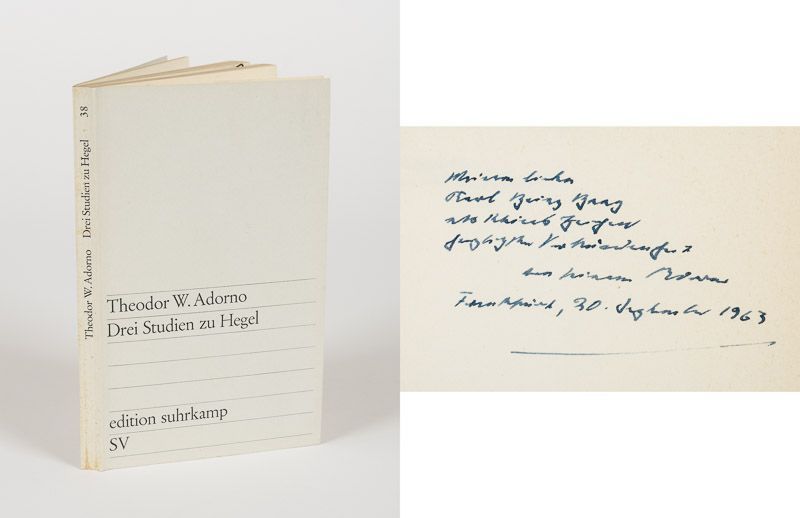 Theodor W. Adorno Drei Studien zu Hegel · 38
Theodor W. Adorno
Drei Studien zu Hegel
edition suhrkamp
SV
Meinem lieben
Karl Heinz Haag
als
von seinem
Frankfurt, 30. September 1963